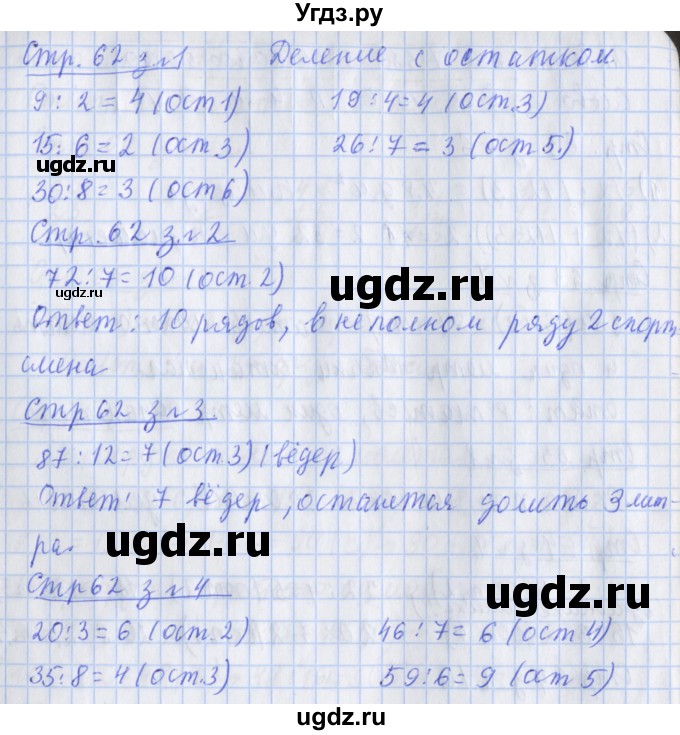 Угдз.ру
Стр. 62 з.№1 Деление с остатком
9 : 2 = 4 (ост 1) 19 : 4 = 4 (ост.3)
15 : 6 = 2 (ост 3) 26 : 7 = 3 (ост 5.)
ugdz.ru
30 : 8 = 3 (ост 6)
Стр. 62 з.№2
72 : 7 = 10 (ост 2)
ugdz.ru
ugdz.ru
Ответ : 10 рядов, в неполном ряду 2 спорт
смена
Стр 62 з №3.
87 : 12 = 7 (ост.3) (вёдер)
Ответ: 7 вёдер, останется долить 3 лит-
ра.
ugdz.ru
Стр 62 з №4
ugdz.ru
20 : 3 = 6 (ост. 2) 46 : 7 = 6 (ост 4)
35 : 8 = 4 (ост.3) 59 : 6 = 9 (ост 5)
ugdz.ru
ugdz.ru